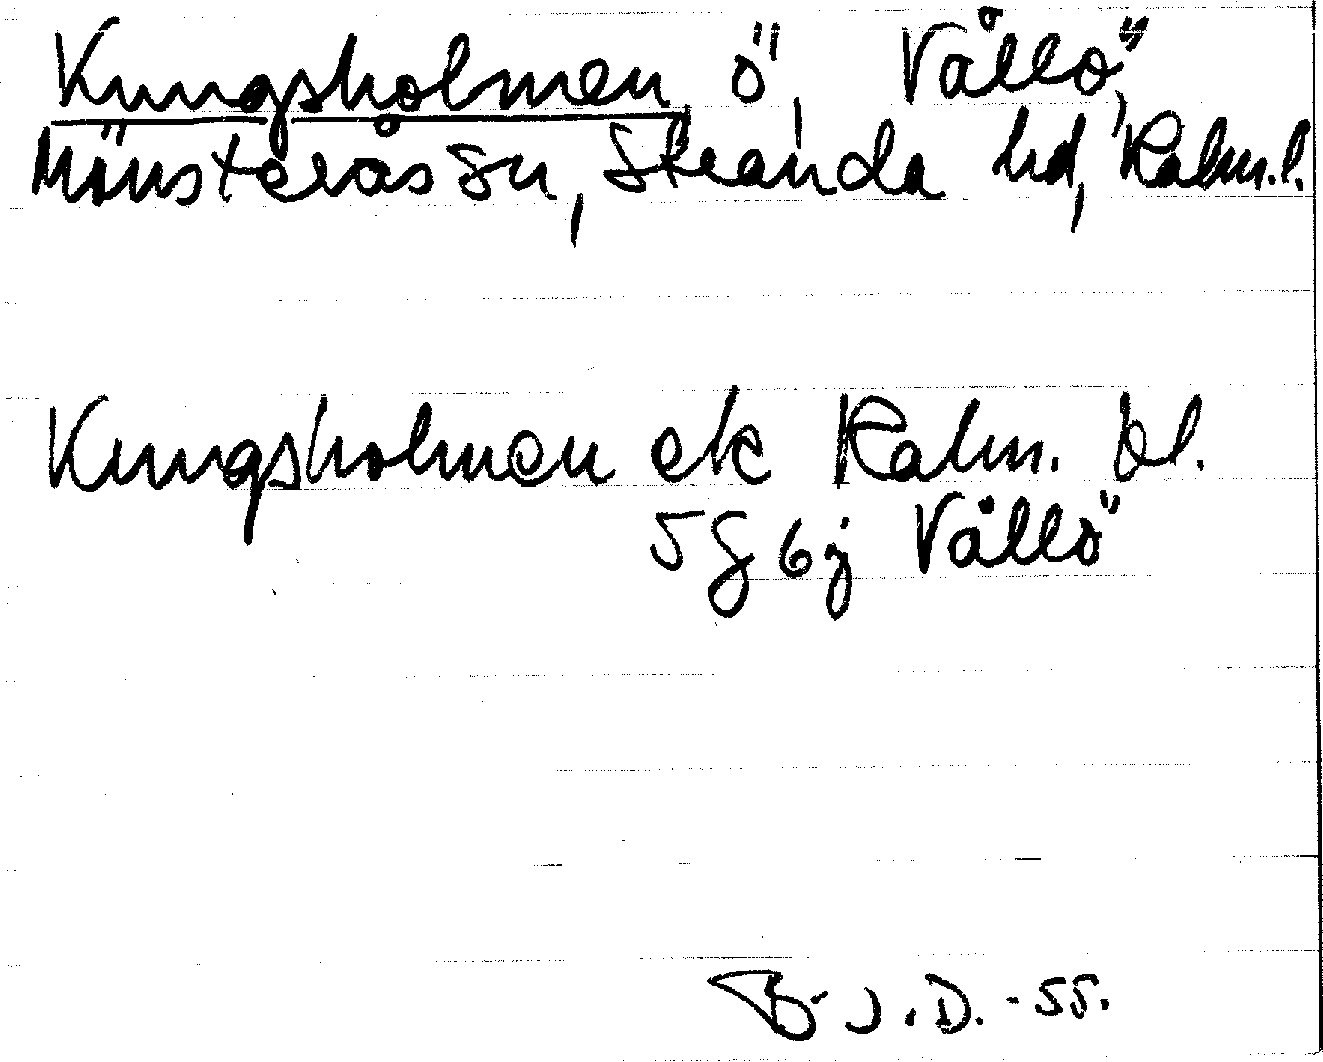 Kungsholmen, ö, Vållö,
Mönsterås sn, Stranda hd, Kalm. l.
Kungsholmen ek Kalm. bl.
5 G 6 j Vållö
B. J. D. -55.